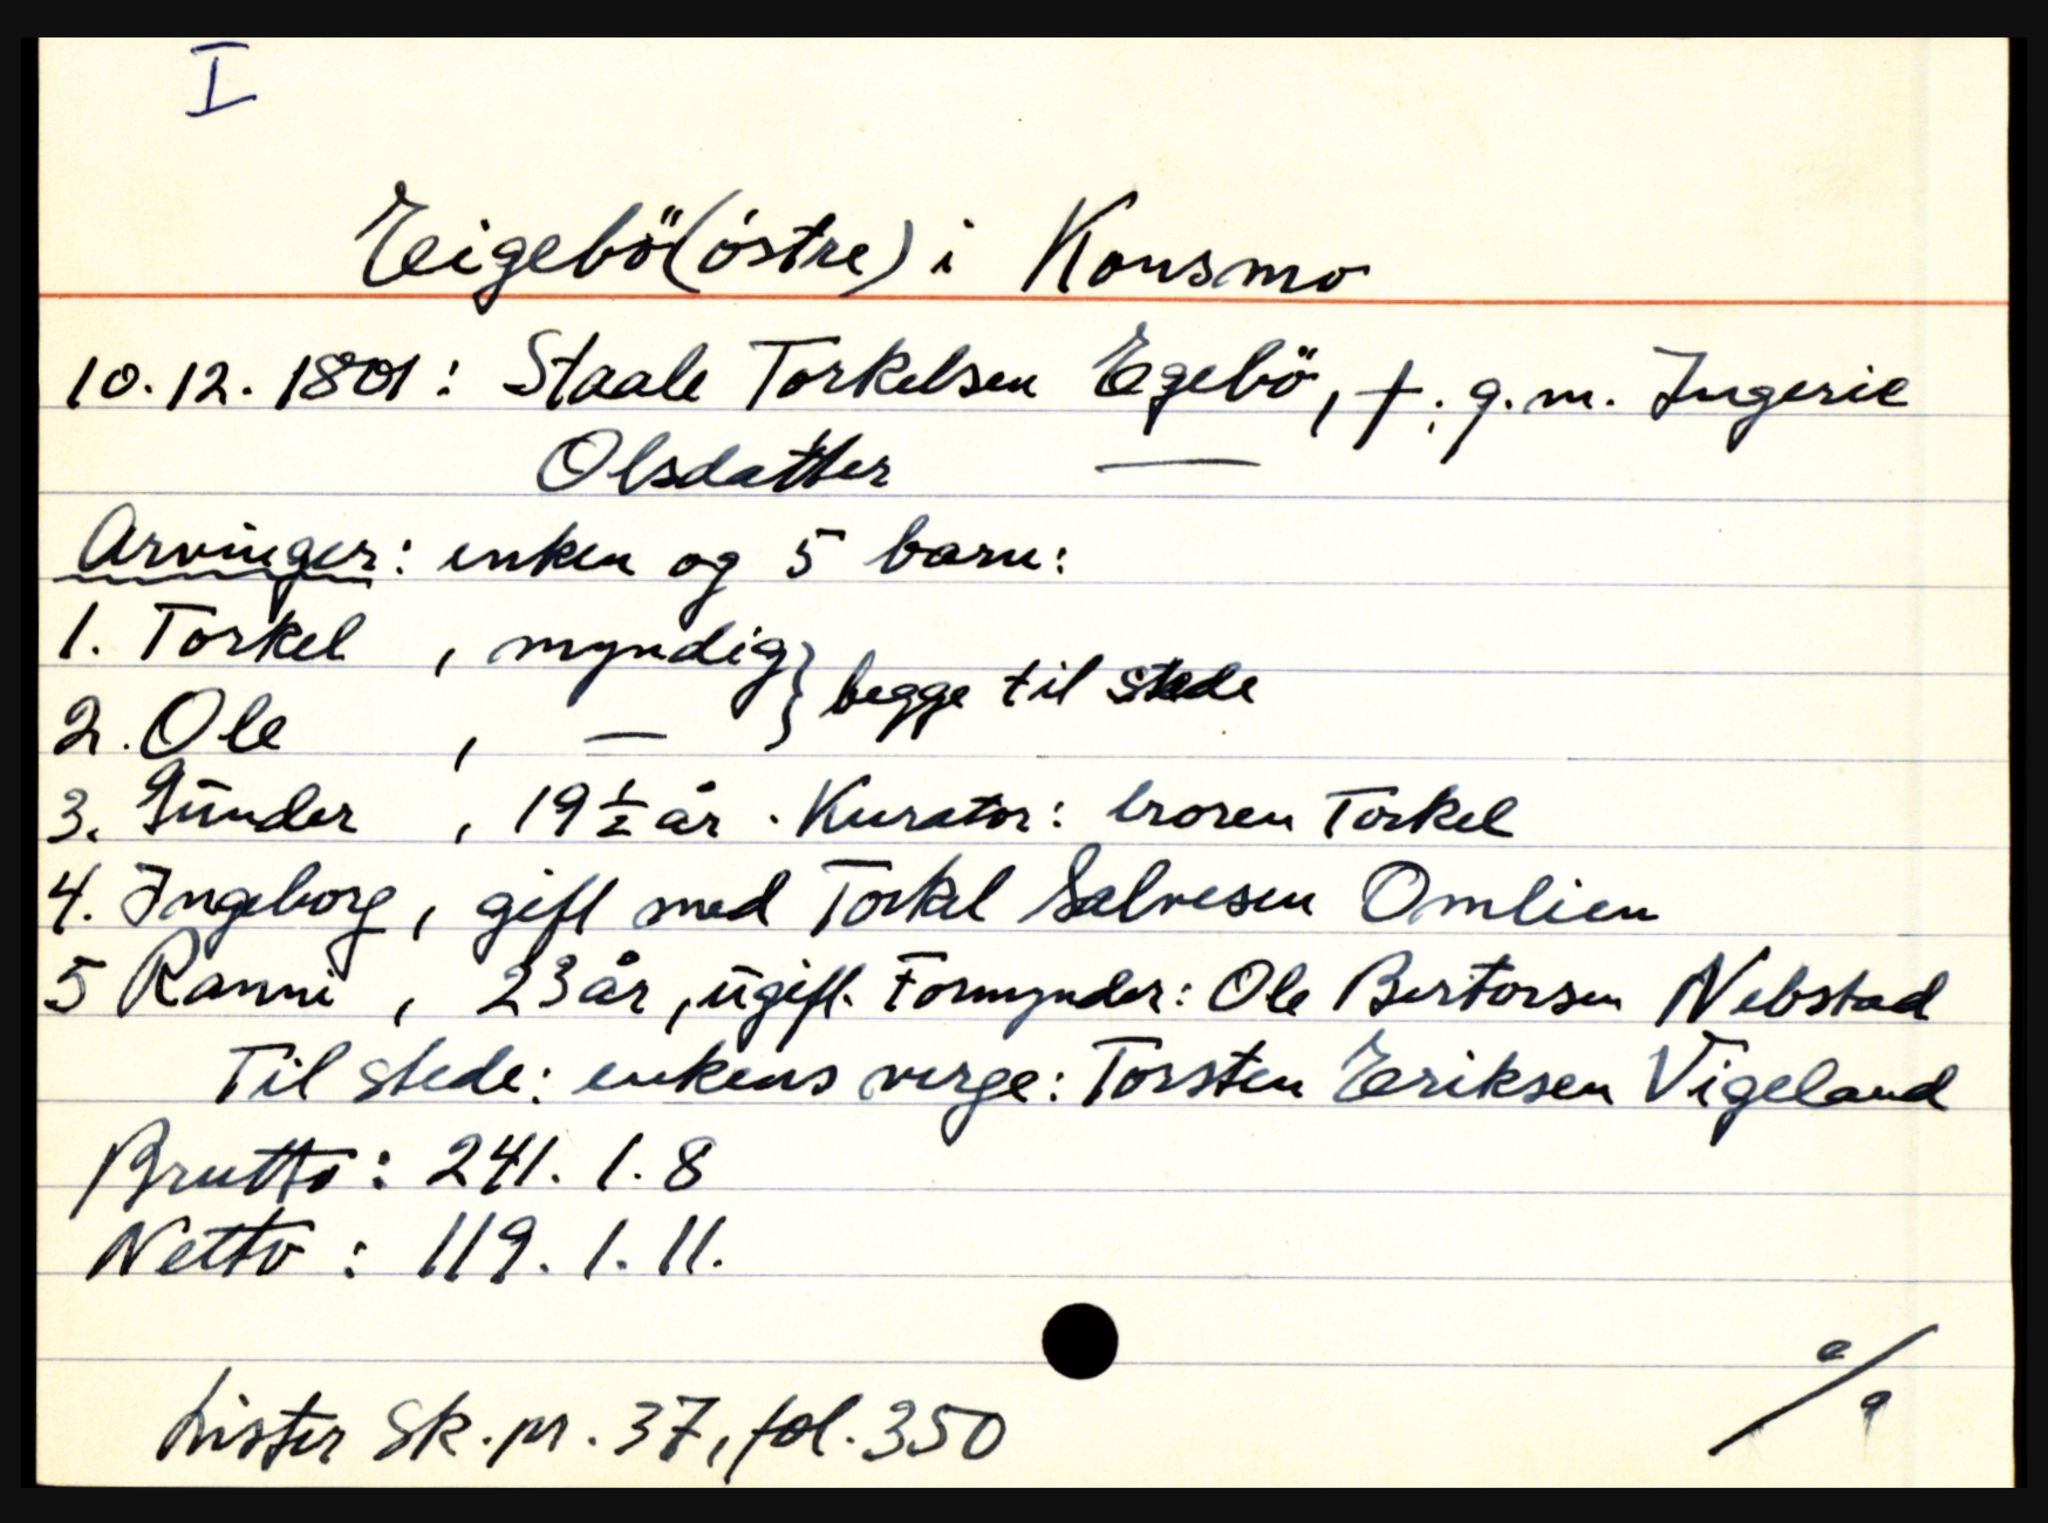 I
Eigebö (östre) i Konsmo
10.12.1801: Staale Torkelsen Egebö, †, g.m. Ingerie
Olsdatter —
Arvinger: enken og 5 barn:
1. Torkel , myndig } begge til stede
2. Ole , — }
3. Gunder , 19 ½ år. Kurator: broren Torkel
4. Ingeborg, gift med Torkel Salvesen Omlien
5 Ranni , 23 år, ugift. Formynder: Ole Bertorsen Nebstad
Til stede: enkens verge: Torsten Eriksen Vigeland
Brutto: 241. 1. 8
Netto : 119. 1. 11.
Lister Sk.pr. 37, fol. 350